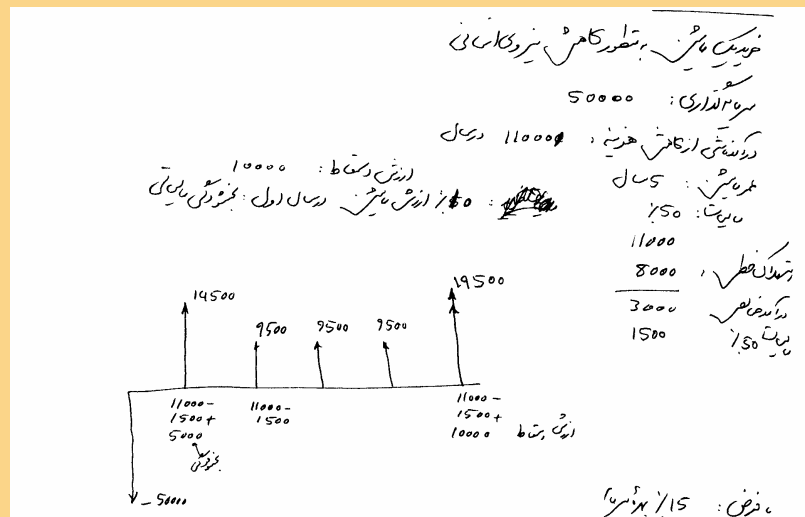 خرید یک ماشین به منظور کاهش نیروی انسانی
سرمایه گذاری: 50000
درآمد ناشی از کاهش هزینه: 11000 در سال
ارزش اسقاط: 10000
عمر ماشین: 5 سال
10٪ ارزش ماشین در سال اول: بخشودگی مالیاتی
مالیات: 50٪
11000
استهلاک خطی: 8000
درآمد خالص 3000
مالیات 50٪ 1500
14500
9500
9500
9500
19500
11000-
1500+
5000
بخشودگی
11000-
1500
11000-
1500+
10000 ارزش اسقاط
-50000
با فرض: 15٪ بهره سرمایه